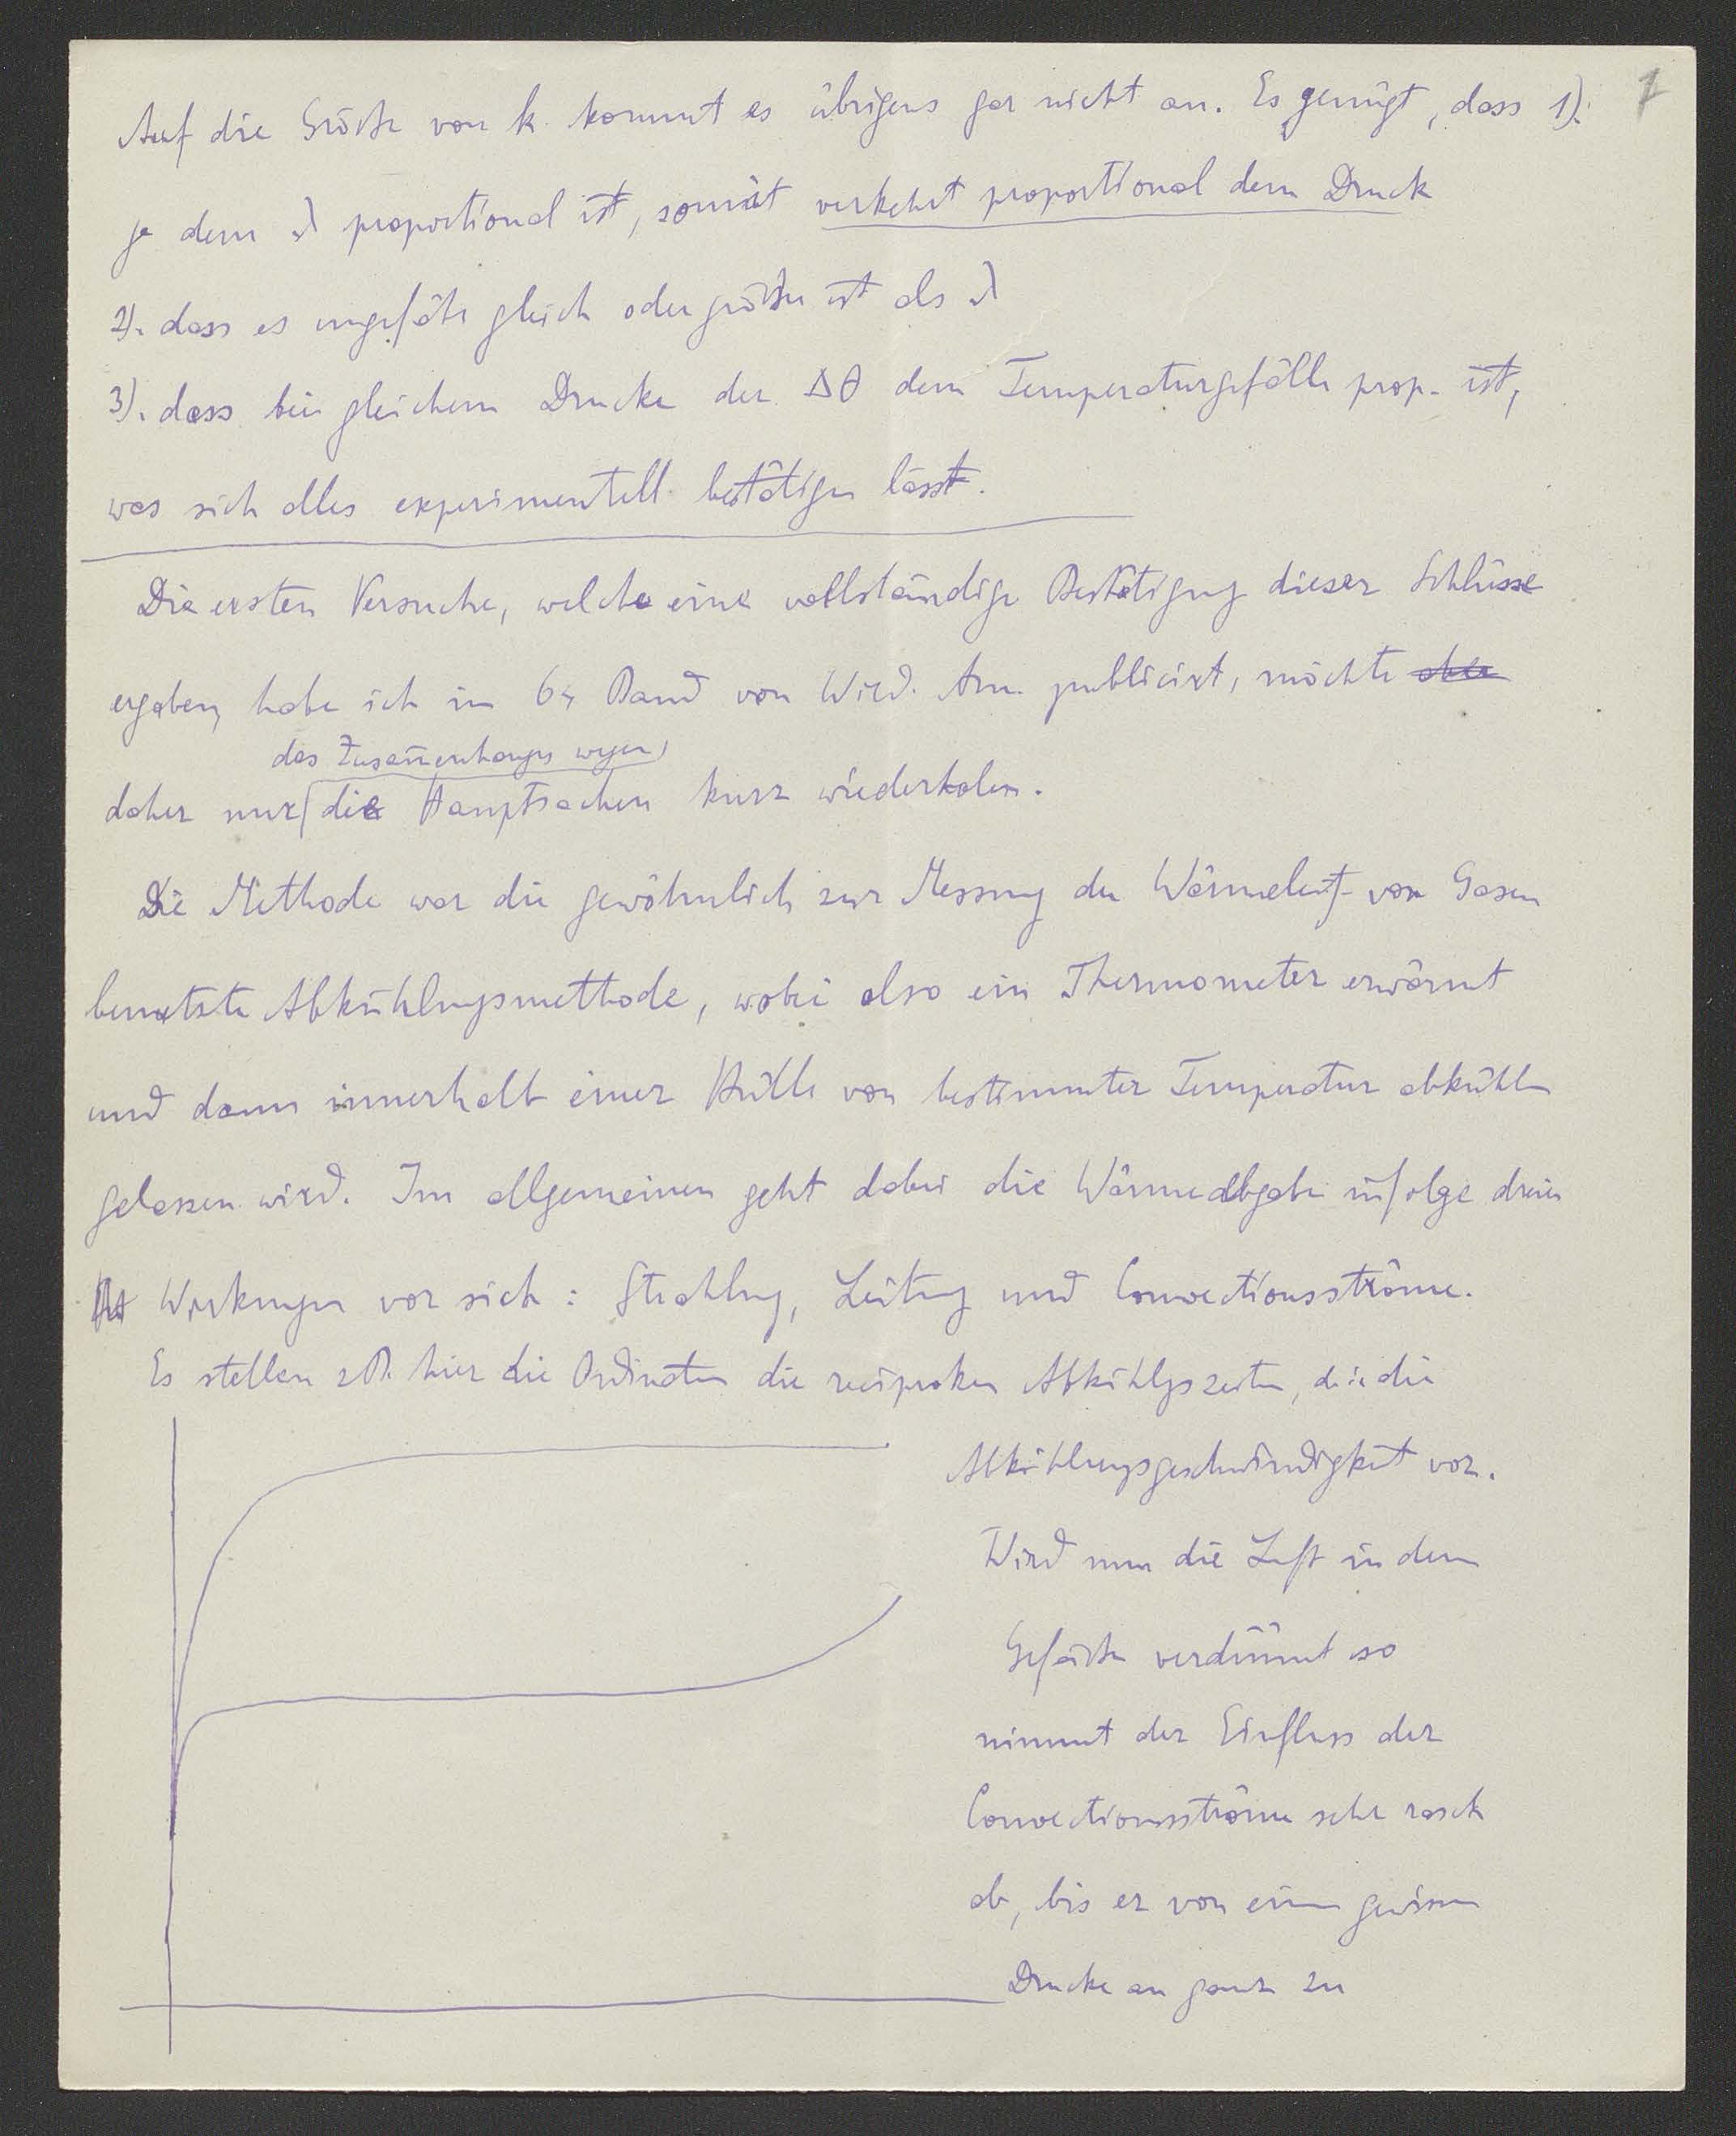 7
Auf die Größe von k kommt es übrigens gar nicht an. Es genügt, dass 1).
γ dem λ proportional ist, somit verkehrt proportional dem Druck
2). dass es ungefähr gleich oder größer ist als λ
3). dass bei gleichem Drucke der Δθ dem Temperaturgefälle prop. ist,
was sich alles experimentell bestätigen lässt.
Die ersten Versuche, welche eine vollständige Bestätigung dieser Schlüsse
ergaben, habe ich im 64 Band von Wied. Ann. publicirt, möchte aber
des Zusam̅enhanges wegen,
daher nur die Hauptsachen kurz wiederholen.
Die Methode war die gewöhnlich zur Messung der Wärmeleitf von Gasen
benutzte Abkühlungsmethode, wobei also ein Thermometer erwärmt
und dann innerhalb einer Hülle von bestimmter Temperatur abkühlen
gelassen wird. Im allgemeinen geht dabei die Wärmeabgabe infolge dreier
Wirkungen vor sich: Strahlung, Leitung und Convectionsströme.
Es stellen zB. hier die Ordinaten die reciproken Abkühlgszeiten, d.i. die
Abkühlungsgeschwindigkeit vor.
Wird nun die Luft in dem
Gefäße verdünnt so
nimmt der Einfluss der
Convectionsströme sehr rasch
ab, bis er von einem gewissen
Drucke an ganz zu